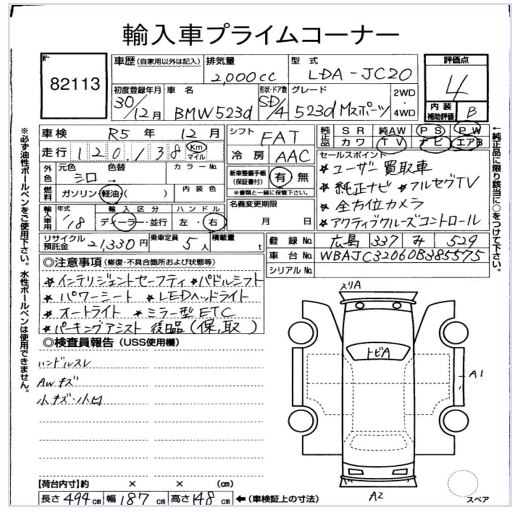 輸入車プライムコーナー
82113
車歴 (自家用以外は記入) 排気量 2,000cc 型式 LDA-JC20
初度登録年月 30/12月 車名 BMW523d 形状・ドア数 SD/4 グレード 523d Mスポーツ 2WD・4WD
評価点 4
内装補助評価 B
車検 R5年 12月 シフト FAT
走行 120,138 Km マイル 冷房 AAC
純正品 SR 純AW PS PW
カワ TV ナビ エアB
外色 元色 シロ 色替 カラーNo.
燃料 ガソリン・軽油・( ) 内装色
新車整備手帳(保証書付) 有・無
※書類と一緒に保管して下さい。
輸入車用 年式 '18 輸入区分 ディーラー・並行 ハンドル 左・右
名義変更期限 月 日
セールスポイント
★ユーザー買取車
★純正ナビ ★フルセグTV
★全方位カメラ
★アクティブクルーズコントロール
リサイクル預託金 21,330円 乗車定員 5人 積載量 t
登録No. 広島 337 み 529
車台No. WBAJC320608385575
シリアルNo.
◎注意事項 (修復・不具合箇所および状態等)
★インテリジェントセーフティ ★パドルシフト
★パワーシート ★LEDヘッドライト
★オートライト ★ミラー型ETC
★パーキングアシスト 後品(保、取)
◎検査員報告 (USS使用欄)
ハンドルスレ
AWキズ
小キズ・小凹
スリA
トビA
A1
A2
スペア
【荷台内寸】約 × × (cm)
長さ 494cm 幅 187cm 高さ 148cm ←(車検証上の寸法)
※必ず油性ボールペンをご使用下さい。水性ボールペンは使用できません。
←純正品に限り該当に○をつけて下さい。